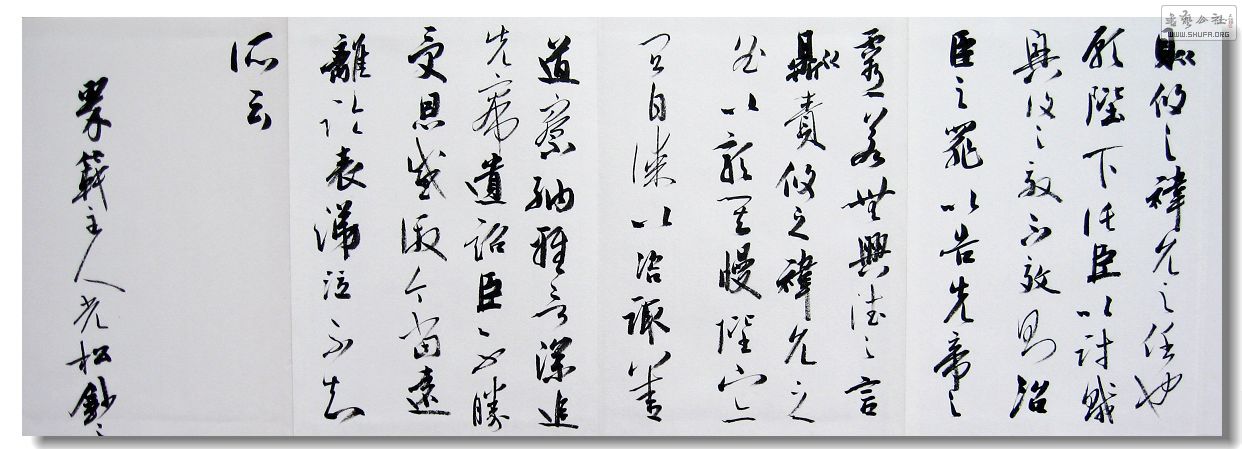 則攸之禕允之任也
願陛下托臣以討賊
興復之效不效則治
臣之罪以告先帝之
靈若無興德之言
則責攸之禕允之
咎以彰其慢陛下亦
宜自課以諮諏善
道察納雅言深追
先帝遺詔臣不勝
受恩感激今當遠
離臨表涕泣不知
所云
主人光松鈔
書藝公社
WWW.SHUFA.ORG